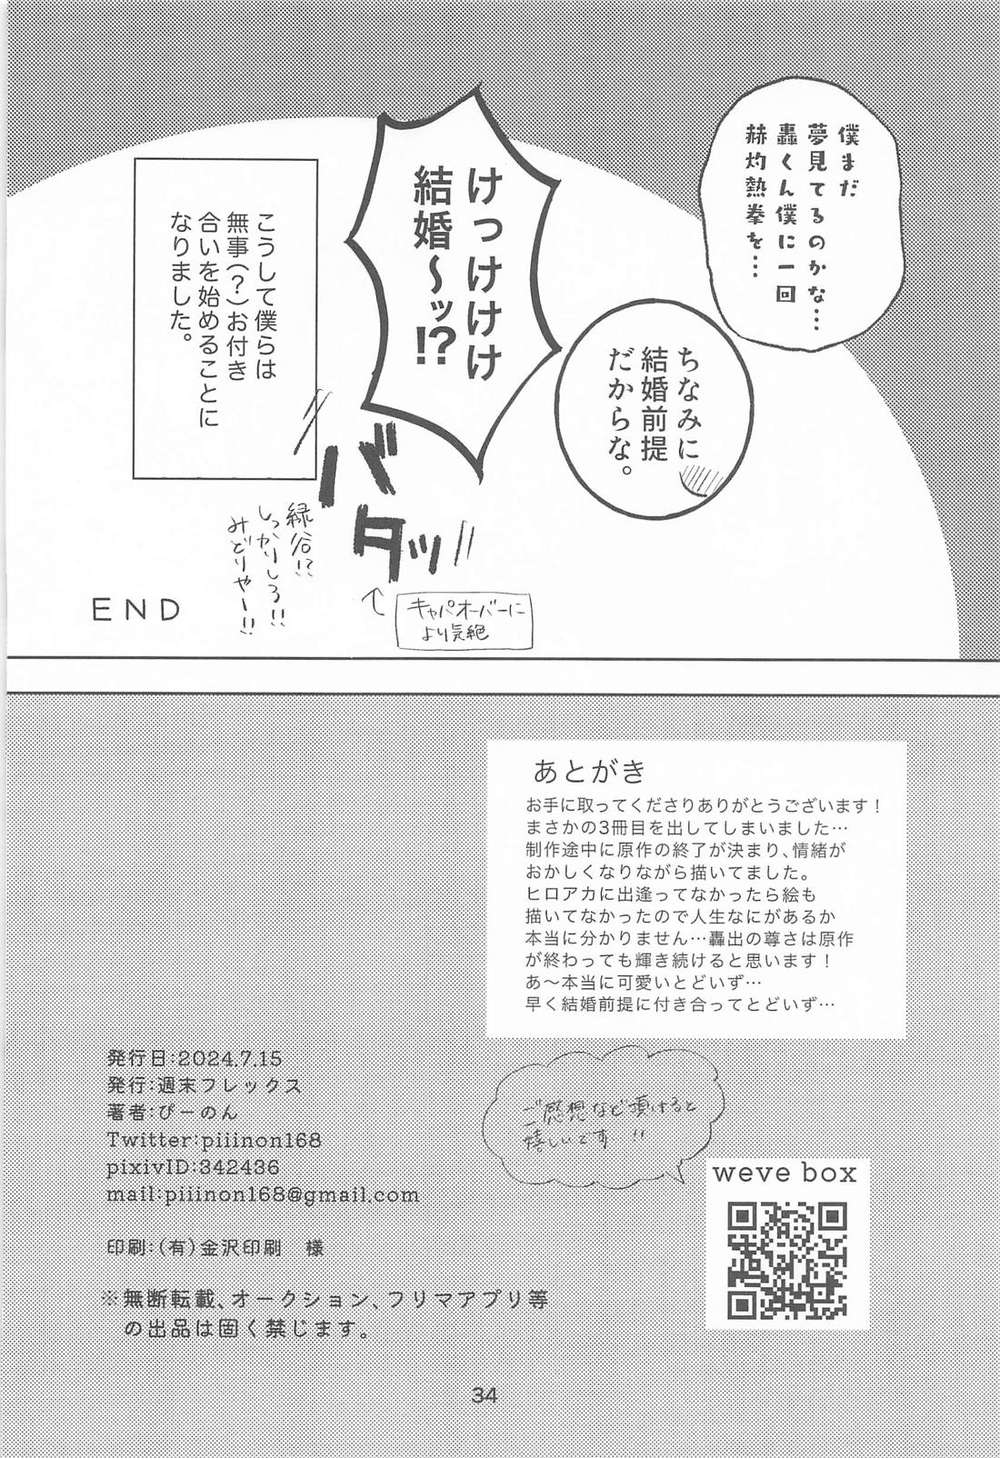 僕まだ
夢見てるのかな…
轟くん僕に一回
赫灼熱拳を…
ちなみに
結婚前提
だからな。
けっけけけ
結婚～ッ!?
こうして僕らは
無事(?)お付き
合いを始めることに
なりました。
バタッ
キャパオーバーに
より気絶
緑谷!?
しっかりしろ!!
みどりやー!!
END
あとがき
お手に取ってくださりありがとうございます！
まさかの3冊目を出してしまいました…
制作途中に原作の終了が決まり、情緒が
おかしくなりながら描いてました。
ヒロアカに出逢ってなかったら絵も
描いてなかったので人生なにがあるか
本当に分かりません…轟出の尊さは原作
が終わっても輝き続けると思います！
あ～本当に可愛いとどいず…
早く結婚前提に付き合ってとどいず…
ご感想など頂けると
嬉しいです…!!
発行日:2024.7.15
発行:週末フレックス
著者:ぴーのん
Twitter:piiinon168
pixivID:342436
mail:piiinon168@gmail.com
印刷:(有)金沢印刷　様
※無断転載、オークション、フリマアプリ等
の出品は固く禁じます。
weve box
34